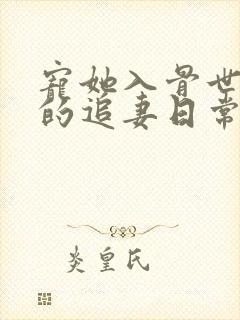 寵她入骨世
的追妻日常
炎皇氏